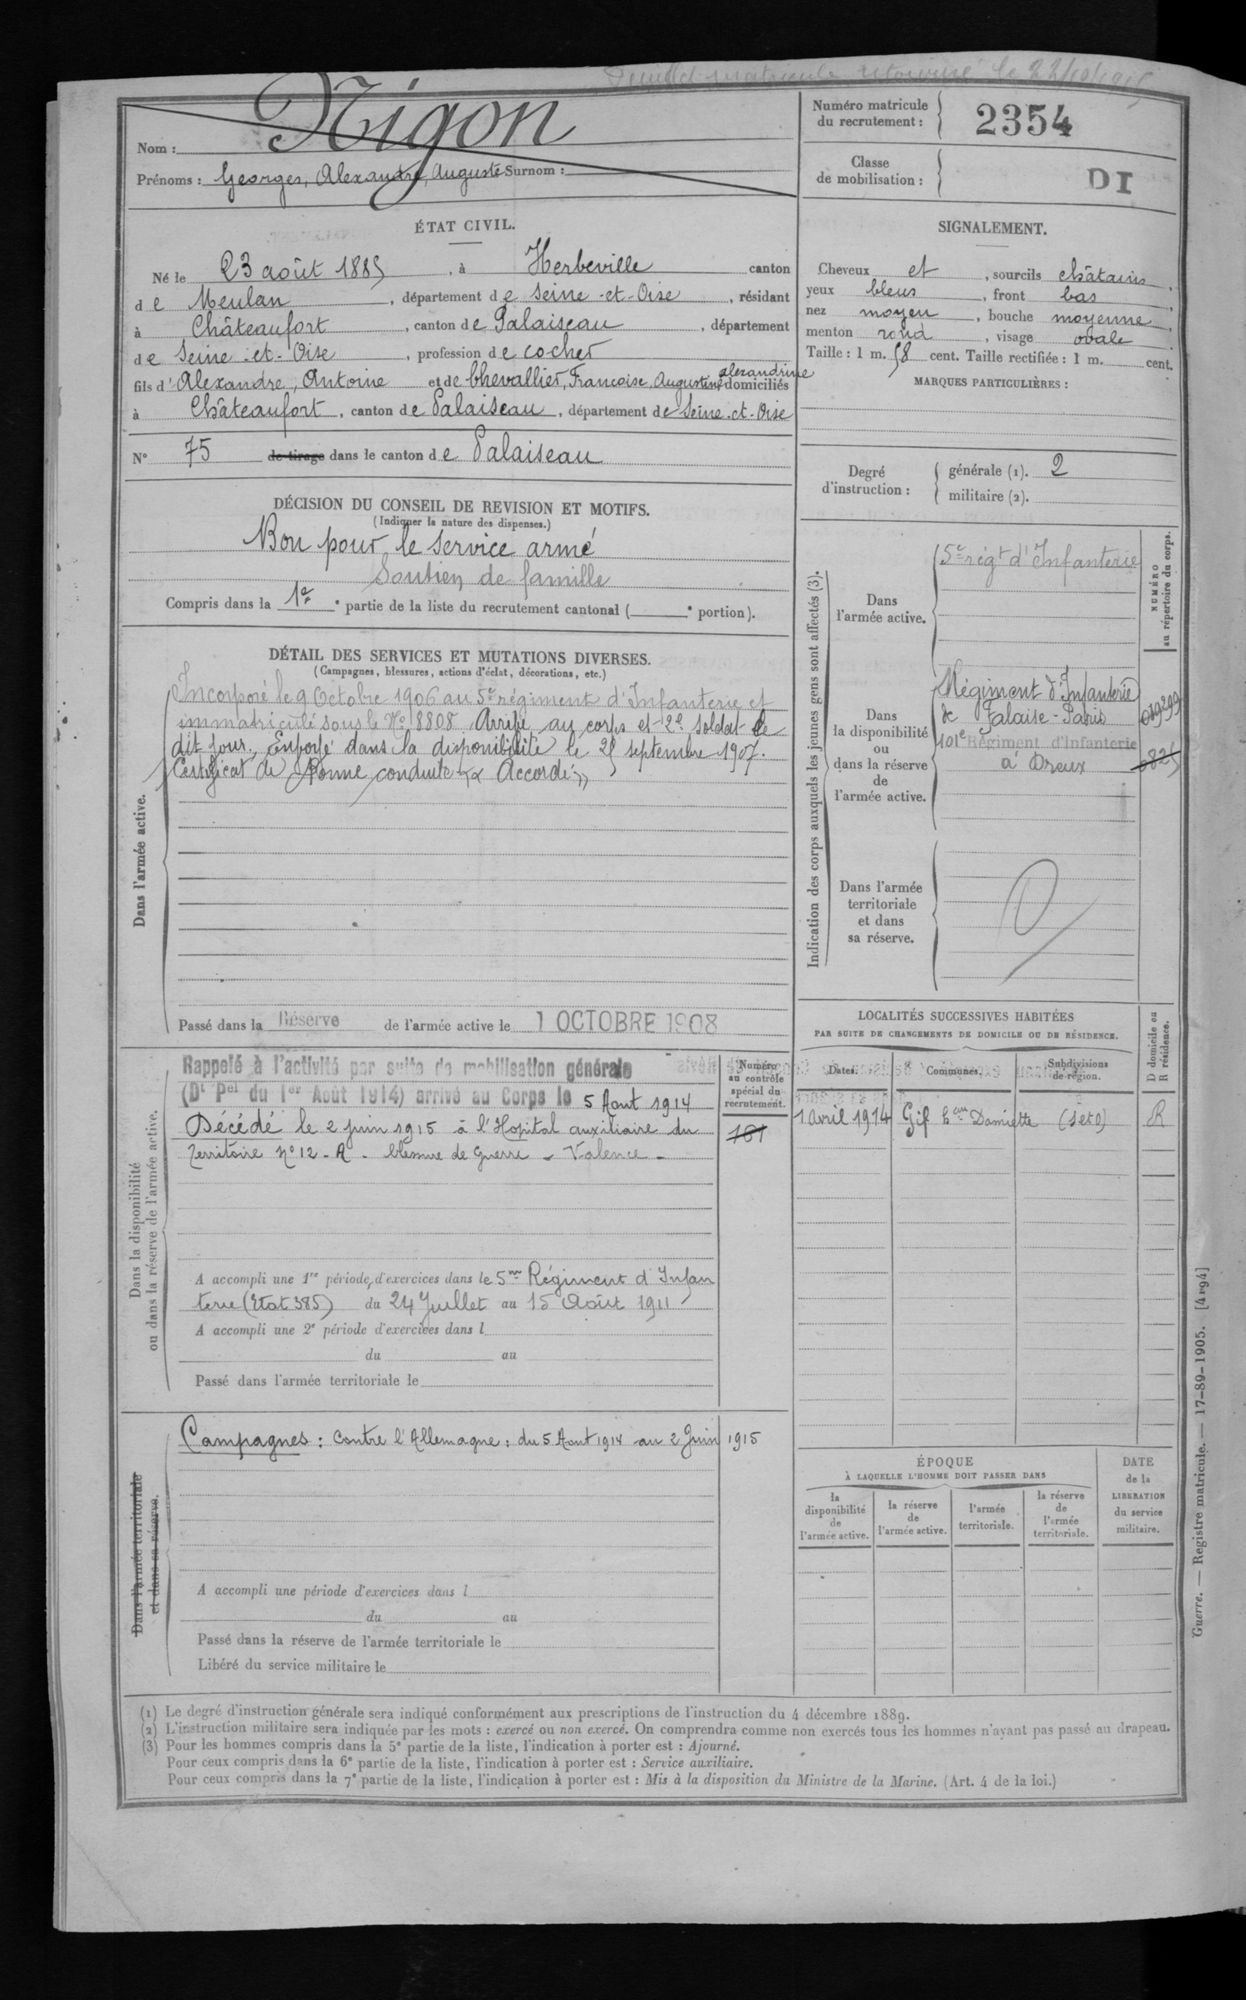 Feuillet matricule retourné le 22/10/1915
Nom : Nigon
Prénoms : Georges, Alexandre, Auguste Surnom :
Numéro matricule du recrutement : 2354
Classe de mobilisation :
DI
ÉTAT CIVIL.
Né le 23 août 1885, à Herbeville canton
de Meulan, département de Seine-et-Oise, résidant
à Châteaufort, canton de Palaiseau, département
de Seine-et-Oise, profession de cocher
fils d'Alexandre, Antoine et de Chevallier, Françoise, Augustine, alexandrine domiciliés
à Châteaufort, canton de Palaiseau, département de Seine-et-Oise
N° 75 de tirage dans le canton de Palaiseau
SIGNALEMENT.
Cheveux et, sourcils châtains,
yeux bleus, front bas,
nez moyen, bouche moyenne,
menton rond, visage ovale
Taille : 1 m. 58 cent. Taille rectifiée : 1 m. cent.
MARQUES PARTICULIÈRES :
Degré d'instruction :
générale (1). 2
militaire (2).
DÉCISION DU CONSEIL DE REVISION ET MOTIFS.
(Indiquer la nature des dispenses.)
Bon pour le service armé
Soutien de famille
Compris dans la 1e ° partie de la liste du recrutement cantonal ( ° portion).
DÉTAIL DES SERVICES ET MUTATIONS DIVERSES.
(Campagnes, blessures, actions d'éclat, décorations, etc.)
Dans l'armée active.
Incorporé le 9 Octobre 1906 au 5e régiment d'Infanterie et
immatriculé sous le No 8808 Arrivé au corps et 2e soldat le
dit jour. Envoyé dans la disponibilité le 28 septembre 1907.
Certificat de Bonne conduite "Accordé"
Passé dans la Réserve de l'armée active le 1 OCTOBRE 1908
Indication des corps auxquels les jeunes gens sont affectés (3).
NUMÉRO au répertoire du corps.
Dans l'armée active.
5e régt d'Infanterie
Dans la disponibilité ou dans la réserve de l'armée active.
Régiment d'Infanterie
de Falaise-Paris
019299
101e Régiment d'Infanterie
à Dreux
0825
Dans l'armée territoriale et dans sa réserve.
LOCALITÉS SUCCESSIVES HABITÉES
PAR SUITE DE CHANGEMENTS DE DOMICILE OU DE RÉSIDENCE.
Dates. Communes. Subdivisions de région. D domicile ou R résidence.
1 avril 1914 Gif hau Damiette (S et O) R
Dans la disponibilité ou dans la réserve de l'armée active.
Rappelé à l'activité par suite de mobilisation générale
(Dt Pel du 1er Août 1914) arrivé au Corps le 5 Aout 1914
Décédé le 2 juin 1915 à l'Hopital auxiliaire du
territoire No 12 - R - blessure de Guerre - Valence -
Numéro au contrôle spécial du recrutement.
181
A accompli une 1re période d'exercices dans le 5me Régiment d'Infan
terie (Etat 385) du 24 Juillet au 15 Août 1911
A accompli une 2e période d'exercices dans l
du au
Passé dans l'armée territoriale le
Dans l'armée territoriale et dans sa réserve.
Campagnes : Contre l'Allemagne : du 5 Aout 1914 au 2 Juin 1915
A accompli une période d'exercices dans l
du au
Passé dans la réserve de l'armée territoriale le
Libéré du service militaire le
ÉPOQUE
À LAQUELLE L'HOMME DOIT PASSER DANS
la disponibilité de l'armée active. la réserve de l'armée active. l'armée territoriale. la réserve de l'armée territoriale.
DATE de la LIBÉRATION du service militaire.
(1) Le degré d'instruction générale sera indiqué conformément aux prescriptions de l'instruction du 4 décembre 1889.
(2) L'instruction militaire sera indiquée par les mots : exercé ou non exercé. On comprendra comme non exercés tous les hommes n'ayant pas passé au drapeau.
(3) Pour les hommes compris dans la 5e partie de la liste, l'indication à porter est : Ajourné.
Pour ceux compris dans la 6e partie de la liste, l'indication à porter est : Service auxiliaire.
Pour ceux compris dans la 7e partie de la liste, l'indication à porter est : Mis à la disposition du Ministre de la Marine. (Art. 4 de la loi.)
Guerre. — Registre matricule. — 17-89-1905. [4194]